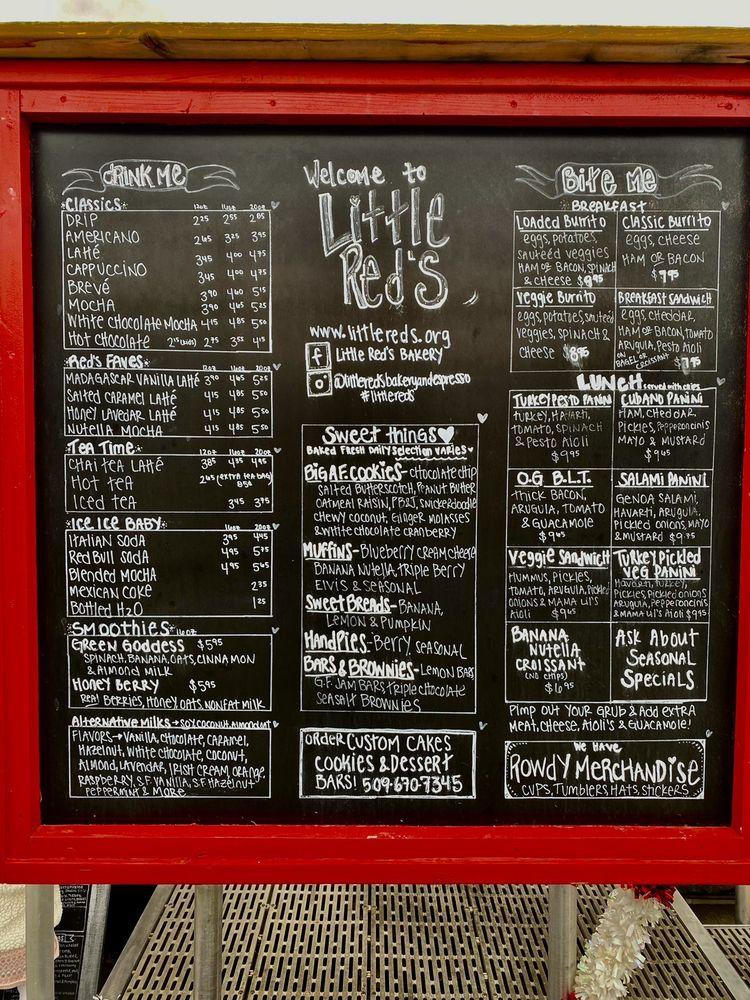 Drink Me
Classics 12oz 16oz 20oz
Drip 2.25 2.55 2.85
Americano 2.65 3.25 3.95
Latté 3.45 4.00 4.75
Cappuccino 3.45 4.00 4.75
Brevé 3.90 4.60 5.15
Mocha 3.90 4.65 5.25
White Chocolate Mocha 4.15 4.85 5.50
Hot Chocolate 3.15 3.55 4.15
Red's Faves
Madagascar Vanilla Latté 3.90 4.65 5.25
Salted Caramel Latté 4.15 4.85 5.50
Honey Lavedar Latté 4.15 4.85 5.50
Nutella Mocha 4.15 4.85 5.50
Tea Time 12oz 16oz 20oz
Chai Tea Latté 3.85 4.35 4.95
Hot Tea 2.65 (extra tea bag
Iced Tea 3.45 3.75
Ice Ice Baby 16oz 20oz
Italian Soda 3.95 4.45
Red Bull Soda 4.95 5.75
Blended Mocha 4.95 5.65
Mexican Coke 2.35
Bottled H2O 1.25
Smoothies 16oz
Green Goddess $5.95
Spinach, Banana, Oats, Cinnamon
& Almond Milk
Honey Berry $5.95
Real Berries, Honey, Oats, Nonfat Milk
Alternative Milks → Soy, Coconut, Almond, Oat
Flavors → Vanilla, Chocolate, Caramel,
Hazelnut, White Chocolate, Coconut,
Almond, Lavendar, Irish Cream, Orange,
Raspberry, S.F. Vanilla, S.F. Hazelnut
Peppermint & More
Welcome to
Little
Red's
www.littlereds.org
f Little Red's Bakery
@littleredsbakeryandespresso
#littlereds
Sweet Things
Baked Fresh Daily Selection Varies
Big A.F. Cookies - Chocolate Chip
Salted Butterscotch, Peanut Butter
Oatmeal Raisin, PB&J, Snickerdoodle
Chewy Coconut, Ginger Molasses
& White Chocolate Cranberry
Muffins - Blueberry Cream Cheese
Banana Nutella, Triple Berry
Elvis & Seasonal
Sweet Breads - Banana,
Lemon & Pumpkin
Hand Pies - Berry, Seasonal
Bars & Brownies - Lemon Bars
G.F. Jam Bars, Triple Chocolate
Seasalt Brownies
Order Custom Cakes
Cookies & Dessert
Bars! 509-670-7345
Bite Me
Breakfast
Loaded Burrito
eggs, potatoes,
sautéed veggies
ham or bacon, spinach
& cheese $9.95
Classic Burrito
eggs, cheese
ham or bacon
$7.95
Veggie Burrito
eggs, potatoes, sauteéd
veggies, spinach &
cheese $8.75
Breakfast Sandwich
eggs, cheddar,
ham or bacon, tomato
arugula, pesto aioli
on bagel or croissant $7.95
Lunch served with chips
Turkey Pesto Panini
turkey, havarti,
tomato, spinach
& pesto aioli
$9.95
Cubano Panini
Ham, cheddar,
Pickles, Pepperoncinis
Mayo & Mustard
$9.45
O.G. B.L.T.
thick bacon,
arugula, tomato
& guacamole
$9.45
Salami Panini
Genoa Salami,
Havarti, Arugula,
Pickled Onions, Mayo
& Mustard $9.75
Veggie Sandwich
Hummus, Pickles,
Tomato, Arugula, Pickled
Onions & Mama Lil's
Aioli $9.45
Turkey Pickled
Veg Panini
Havarti, Turkey,
Pickles, Pickled onions
Arugula, Pepperoncinis
& Mama Lil's Aioli $9.95
Banana
Nutella
Croissant
(No Chips)
$6.95
Ask About
Seasonal
Specials
Pimp out your grub & add extra
Meat, Cheese, Aioli's & Guacamole!
We Have
Rowdy Merchandise
Cups, Tumblers, Hats, Stickers